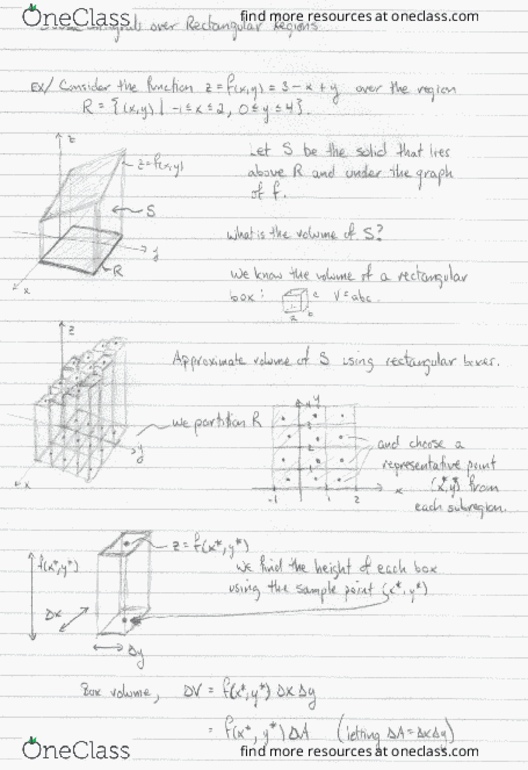 OneClass
find more resources at oneclass.com
Integrals over Rectangular Regions
Ex/ Consider the function z = f(x,y) = 3 - x + y over the region
R = {(x,y) | -1 ≤ x ≤ 2, 0 ≤ y ≤ 4}.
z
z = f(x,y)
S
y
R
x
Let S be the solid that lies
above R and under the graph
of f.
What is the volume of S?
We know the volume of a rectangular
box: a b c V = abc.
z
y
x
Approximate volume of S using rectangular boxes.
we partition R
y
x
-1 1 2
and choose a
representative point
(x*,y*) from
each subregion.
f(x*,y*)
Δx
Δy
z = f(x*,y*)
we find the height of each box
using the sample point (x*,y*)
Box volume, ΔV = f(x*,y*) Δx Δy
= f(x*,y*) ΔA (letting ΔA = ΔxΔy)
OneClass
find more resources at oneclass.com